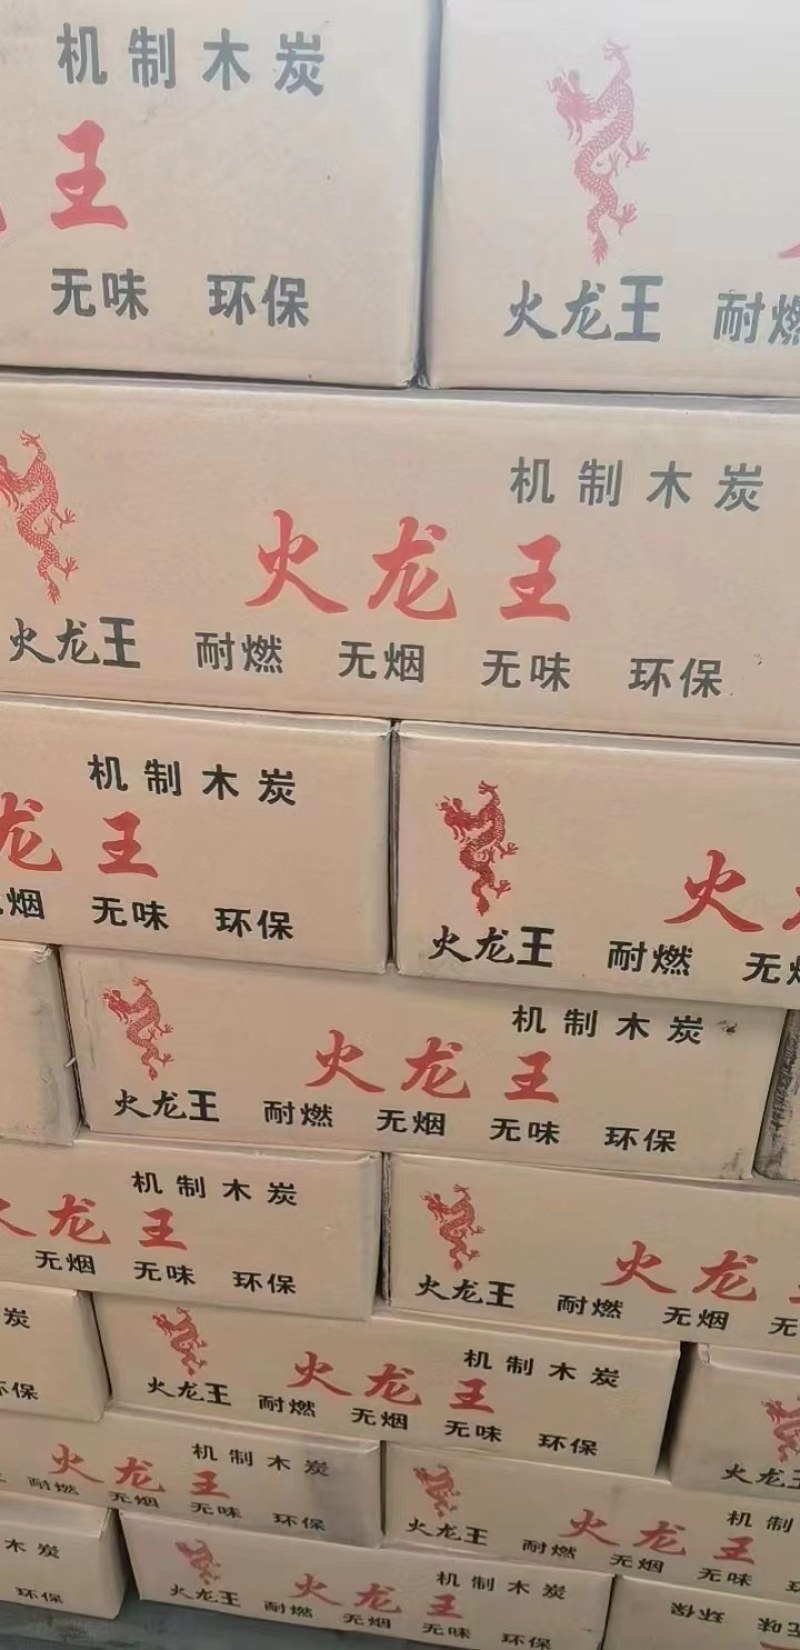 机制木炭
王
无味 环保
火龙王 耐燃
机制木炭
火龙王
火龙王 耐燃 无烟 无味 环保
机制木炭
龙王
烟 无味 环保
火
火龙王 耐燃 无烟
机制木炭
火龙王
火龙王 耐燃 无烟 无味 环保
机制木炭
火龙王
无烟 无味 环保
火龙王
火龙王 耐燃 无烟 无
炭
环保
机制木炭
火龙王
火龙王 耐燃 无烟 无味 环保
火龙王
机制木炭
火龙王
耐燃 无烟 无味 环保
机制
火龙王
火龙王 耐燃 无烟 无味 环
木炭
环保
机制木炭
火龙王
火龙王 耐燃 无烟 无味 环保